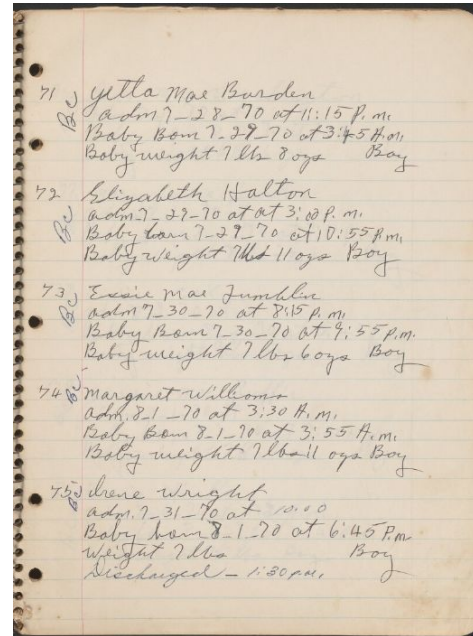 71 Yetta Mae Burden
Bc adm 7-28-70 at 11:15 P.m.
Baby Born 7-29-70 at 3:45 A.m.
Baby weight 7 lbs 8 ozs Boy
72 Elizabeth Halton
Bc adm. 7-29-70 at at 3:00 P.m.
Baby born 7-29-70 at 10:55 P.m.
Baby weight 7 lbs 11 ozs Boy
73 Essie Mae Tumblin
Bc adm 7-30-70 at 8:15 p.m.
Baby Born 7-30-70 at 9:55 p.m.
Baby weight 7 lbs 6 ozs Boy
74 Margaret Williams
Bc adm. 8-1-70 at 3:30 A.m.
Baby Born 8-1-70 at 3:55 A.m.
Baby weight 7 lbs 11 ozs Boy
75 Irene Wright
Bc adm. 7-31-70 at 10:00
Baby born 8-1-70 at 6:45 P.m.
Weight 7 lbs Boy
Discharged - 1:30 p.m.